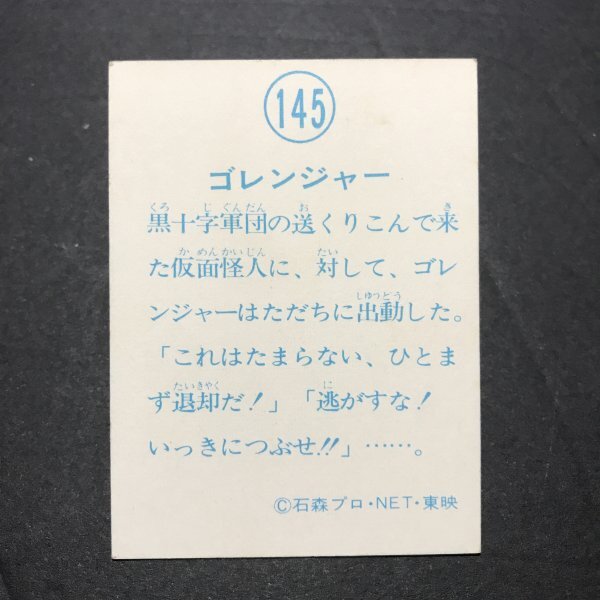 145
ゴレンジャー
黒十字軍団の送くりこんで来
た仮面怪人に、対して、ゴレ
ンジャーはただちに出動した。
「これはたまらない、ひとま
ず退却だ！」「逃がすな！
いっきにつぶせ!!」……。
©石森プロ・NET・東映